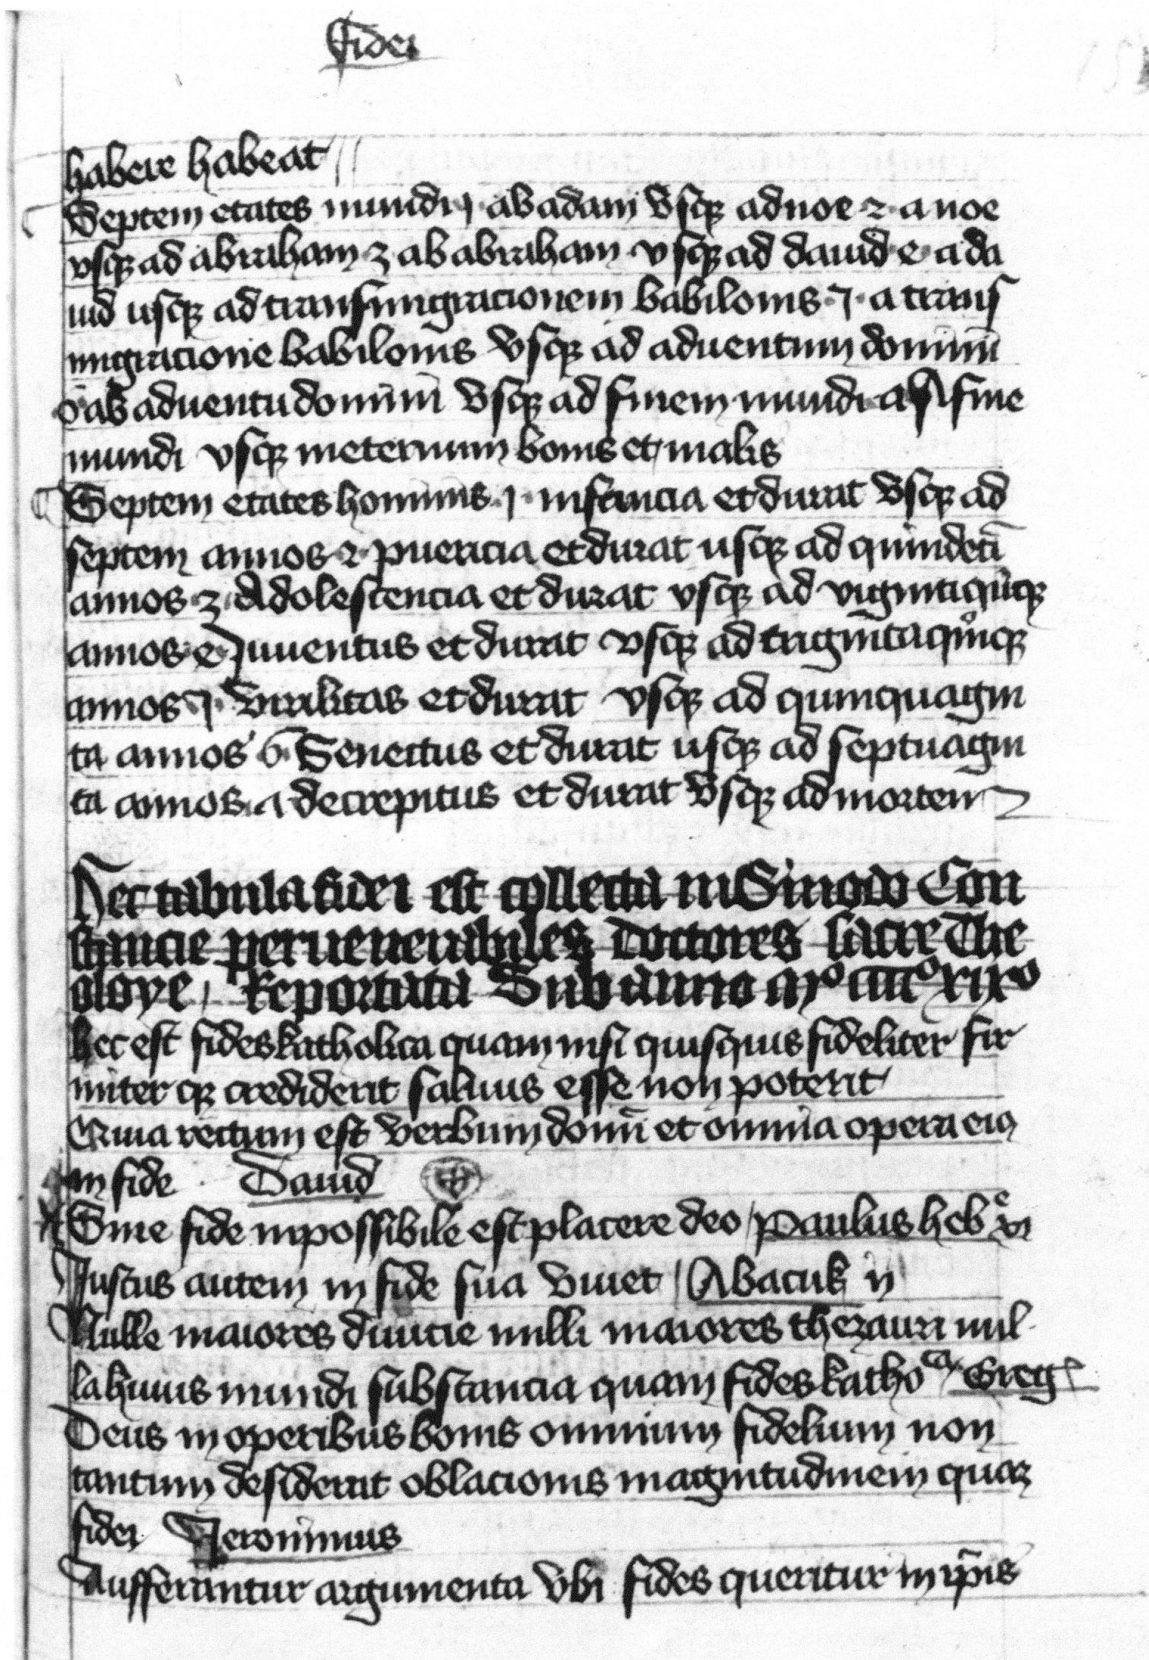 Fidei
habere habeat
Septem etates mundi 1 ab adam vsq ad noe 2 a noe
vsq ad abraham 3 ab abraham vsq ad dauid 4 a da
uid usq ad transmigracionem babilonis 5 a trans
migracione babilonis vsq ad aduentum domini
6 ab aduentu domini vsq ad finem mundi 7 A fine
mundi vsq ineternum bonis et malis
Septem etates hominis 1 infancia et durat vsq ad
septem annos 2 puericia et durat usq ad quindeci
annos 3 Adolescencia et durat vsq ad vigintiquiq
annos 4 Juuentus et durat vsq ad trigintaquiq
annos 5 virilitas et durat vsq ad quinquagin
ta annos 6 Senectus et durat usq ad septuagin
ta annos 7 decrepitus et durat vsq ad mortem
Hec tabula fidei est collecta in Sinodo Con
stancie per venerabiles doctores sacre The
oloye Reportata Sub anno mº ccccº xixº
hec est fides katholica quam nisi quisquis fideliter fir
miter q crediderit saluus esse non poterit
Quia rectum est verbum domi et omnia opera eiꝯ
in fide Dauid
Sine fide inpossibile est placere deo paulus heb xi
Justus autem in fide sua viuet Abacuk ij
Nulle maiores diuicie nulli maiores thezauri nul
la huius mundi substancia quam fides kathoca Greg
Deus in operibus bonis omnium fidelium non
tantum desiderat oblacionis magnitudinem quaz
fidei Jeronimus
Aufferantur argumenta vbi fides queritur in ipis